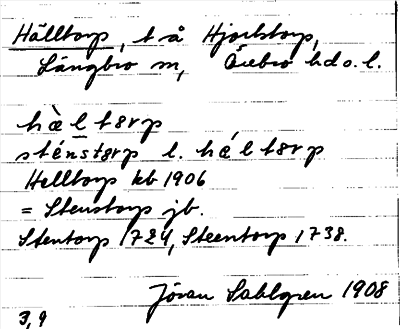 Hälltorp, t å Hjorlstorp,
Längbro sn, Örebro hd o. l.
hæ̀ltɵrp
sténstɵrp l. hǽltɵrp
Helltorp kb 1906
= Stenstorp jb.
Stentorp 1724, Steentorp 1738.
Jöran Sahlgren 1908
3,9